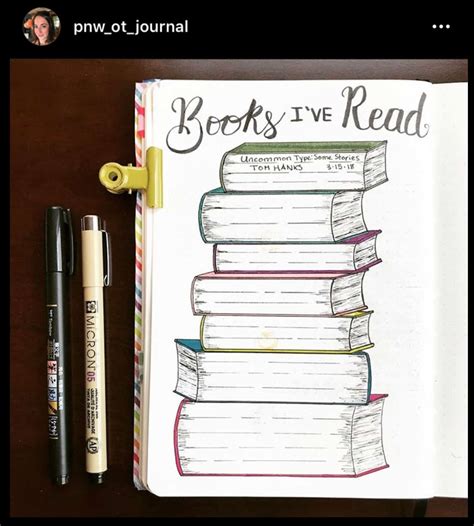 pnw_ot_journal
Books I've Read
Uncommon Type: Some Stories
TOM HANKS 3-15-18
MICRON 05